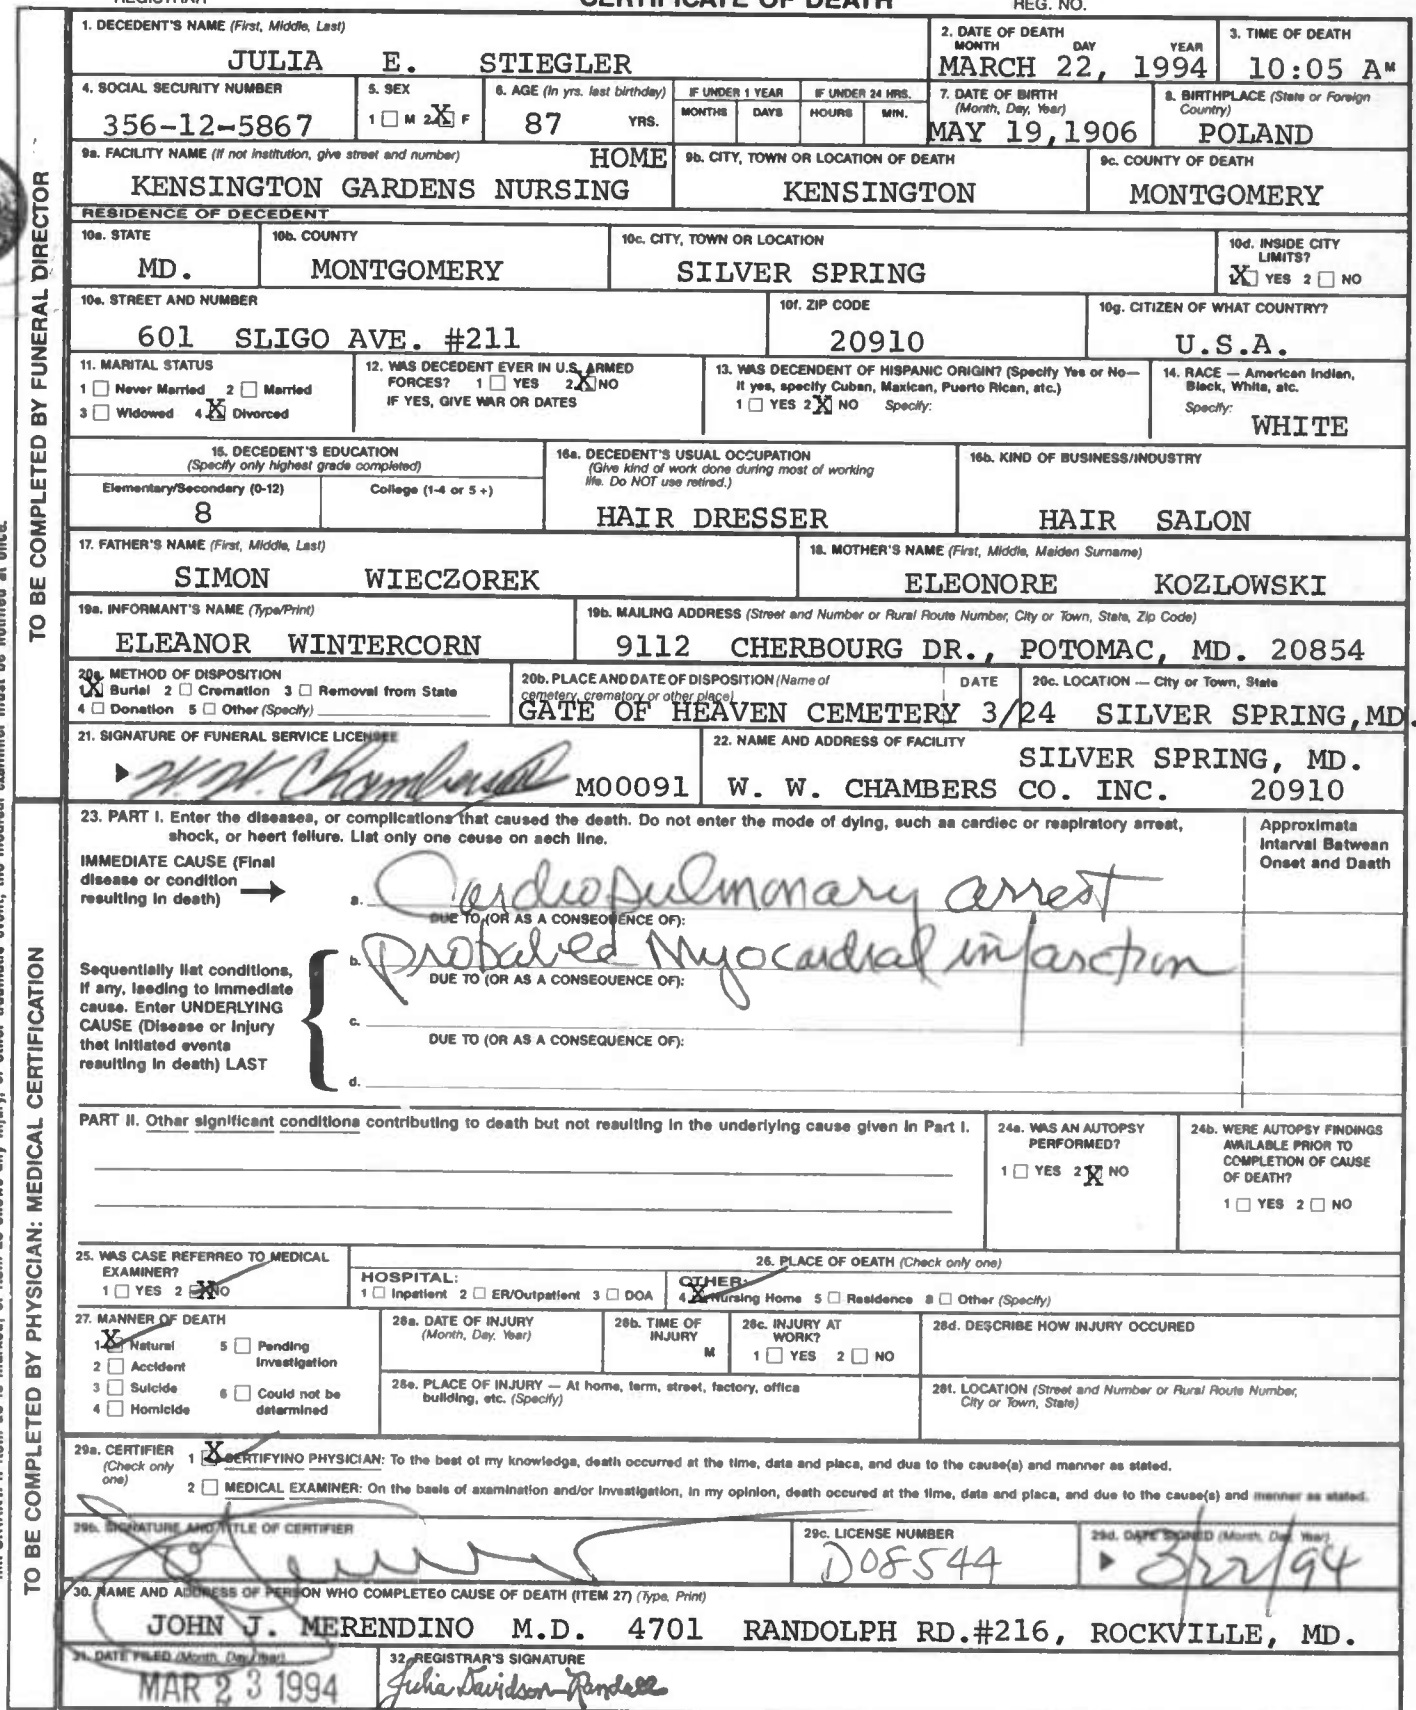 CERTIFICATE OF DEATH
REG. NO.
1. DECEDENT'S NAME (First, Middle, Last)
JULIA E. STIEGLER
2. DATE OF DEATH
MONTH DAY YEAR
MARCH 22, 1994
3. TIME OF DEATH
10:05 AM
4. SOCIAL SECURITY NUMBER
356-12-5867
5. SEX
1 M 2 X F
6. AGE (In yrs. last birthday)
87 YRS.
IF UNDER 1 YEAR
MONTHS DAYS
IF UNDER 24 HRS.
HOURS MIN.
7. DATE OF BIRTH
(Month, Day, Year)
MAY 19,1906
8. BIRTHPLACE (State or Foreign
Country)
POLAND
9a. FACILITY NAME (If not institution, give street and number)
HOME
KENSINGTON GARDENS NURSING
9b. CITY, TOWN OR LOCATION OF DEATH
KENSINGTON
9c. COUNTY OF DEATH
MONTGOMERY
RESIDENCE OF DECEDENT
10a. STATE
MD.
10b. COUNTY
MONTGOMERY
10c. CITY, TOWN OR LOCATION
SILVER SPRING
10d. INSIDE CITY
LIMITS?
X YES 2 NO
10e. STREET AND NUMBER
601 SLIGO AVE. #211
10f. ZIP CODE
20910
10g. CITIZEN OF WHAT COUNTRY?
U.S.A.
11. MARITAL STATUS
1 Never Married 2 Married
3 Widowed 4 X Divorced
12. WAS DECEDENT EVER IN U.S. ARMED
FORCES? 1 YES 2 X NO
IF YES, GIVE WAR OR DATES
13. WAS DECENDENT OF HISPANIC ORIGIN? (Specify Yes or No—
It yes, specify Cuban, Maxican, Puerto Rican, atc.)
1 YES 2 X NO Specify:
14. RACE — American Indian,
Black, White, atc.
Specify:
WHITE
15. DECEDENT'S EDUCATION
(Specify only highest grade completed)
Elementary/Secondary (0-12)
8
College (1-4 or 5 +)
16a. DECEDENT'S USUAL OCCUPATION
(Give kind of work done during most of working
life. Do NOT use retired.)
HAIR DRESSER
16b. KIND OF BUSINESS/INDUSTRY
HAIR SALON
17. FATHER'S NAME (First, Middle, Last)
SIMON WIECZOREK
18. MOTHER'S NAME (First, Middle, Maiden Surname)
ELEONORE KOZLOWSKI
19a. INFORMANT'S NAME (Type/Print)
ELEANOR WINTERCORN
19b. MAILING ADDRESS (Street and Number or Rural Route Number, City or Town, State, Zip Code)
9112 CHERBOURG DR., POTOMAC, MD. 20854
20a. METHOD OF DISPOSITION
1 X Burial 2 Cremation 3 Removal from State
4 Donation 5 Other (Specify)
20b. PLACE AND DATE OF DISPOSITION (Name of
cemetery, crematory or other place)
DATE
GATE OF HEAVEN CEMETERY 3/24
20c. LOCATION — City or Town, State
SILVER SPRING,MD.
21. SIGNATURE OF FUNERAL SERVICE LICENSEE
W. W. Chambers
M00091
22. NAME AND ADDRESS OF FACILITY
SILVER SPRING, MD.
W. W. CHAMBERS CO. INC. 20910
TO BE COMPLETED BY FUNERAL DIRECTOR
23. PART I. Enter the diseases, or complications that caused the death. Do not enter the mode of dying, such as cardiec or respiratory arrest,
shock, or heert feilure. List only one ceuse on aech line.
Approximata
Intarval Batwean
Onset and Daath
IMMEDIATE CAUSE (Final
disease or condition
resulting in death)
a. Cardiopulmonary arrest
DUE TO (OR AS A CONSEQUENCE OF):
b. Myocardial infarction
DUE TO (OR AS A CONSEQUENCE OF):
Sequentially list conditions,
If any, laeding to Immediate
cause. Enter UNDERLYING
CAUSE (Disease or Injury
thet Initiated events
resulting in death) LAST
c.
DUE TO (OR AS A CONSEQUENCE OF):
d.
PART II. Other significant conditions contributing to death but not resulting in the underlying cause given in Part I.
24a. WAS AN AUTOPSY
PERFORMED?
1 YES 2 X NO
24b. WERE AUTOPSY FINDINGS
AVAILABLE PRIOR TO
COMPLETION OF CAUSE
OF DEATH?
1 YES 2 NO
25. WAS CASE REFERRED TO MEDICAL
EXAMINER?
1 YES 2 X NO
26. PLACE OF DEATH (Check only one)
HOSPITAL:
1 Inpatient 2 ER/Outpatient 3 DOA
OTHER:
4 X Nursing Home 5 Residence 8 Other (Specify)
27. MANNER OF DEATH
1 X Natural 5 Pending
Investigation
2 Accident
3 Suicide 6 Could not be
determined
4 Homicide
28a. DATE OF INJURY
(Month, Day, Year)
28b. TIME OF
INJURY
M
28c. INJURY AT
WORK?
1 YES 2 NO
28d. DESCRIBE HOW INJURY OCCURED
28e. PLACE OF INJURY — At home, term, street, factory, office
building, etc. (Specify)
28f. LOCATION (Street and Number or Rural Route Number,
City or Town, State)
29a. CERTIFIER
(Check only
one)
1 X CERTIFYING PHYSICIAN: To the best of my knowledga, death occurred at the time, data and placa, and dua to the cause(a) and manner as stated.
2 MEDICAL EXAMINER: On the basis of axamination and/or Investigation, in my opinion, death occured at the time, data and placa, and due to the cause(s) and manner as stated.
29b. SIGNATURE AND TITLE OF CERTIFIER
29c. LICENSE NUMBER
D08544
29d. DATE SIGNED (Month, Day, Year)
3/22/94
30. NAME AND ADDRESS OF PERSON WHO COMPLETED CAUSE OF DEATH (ITEM 27) (Type, Print)
JOHN J. MERENDINO M.D. 4701 RANDOLPH RD.#216, ROCKVILLE, MD.
31. DATE FILED (Month, Day, Year)
MAR 23 1994
32. REGISTRAR'S SIGNATURE
Julia Davidson-Randall
TO BE COMPLETED BY PHYSICIAN: MEDICAL CERTIFICATION